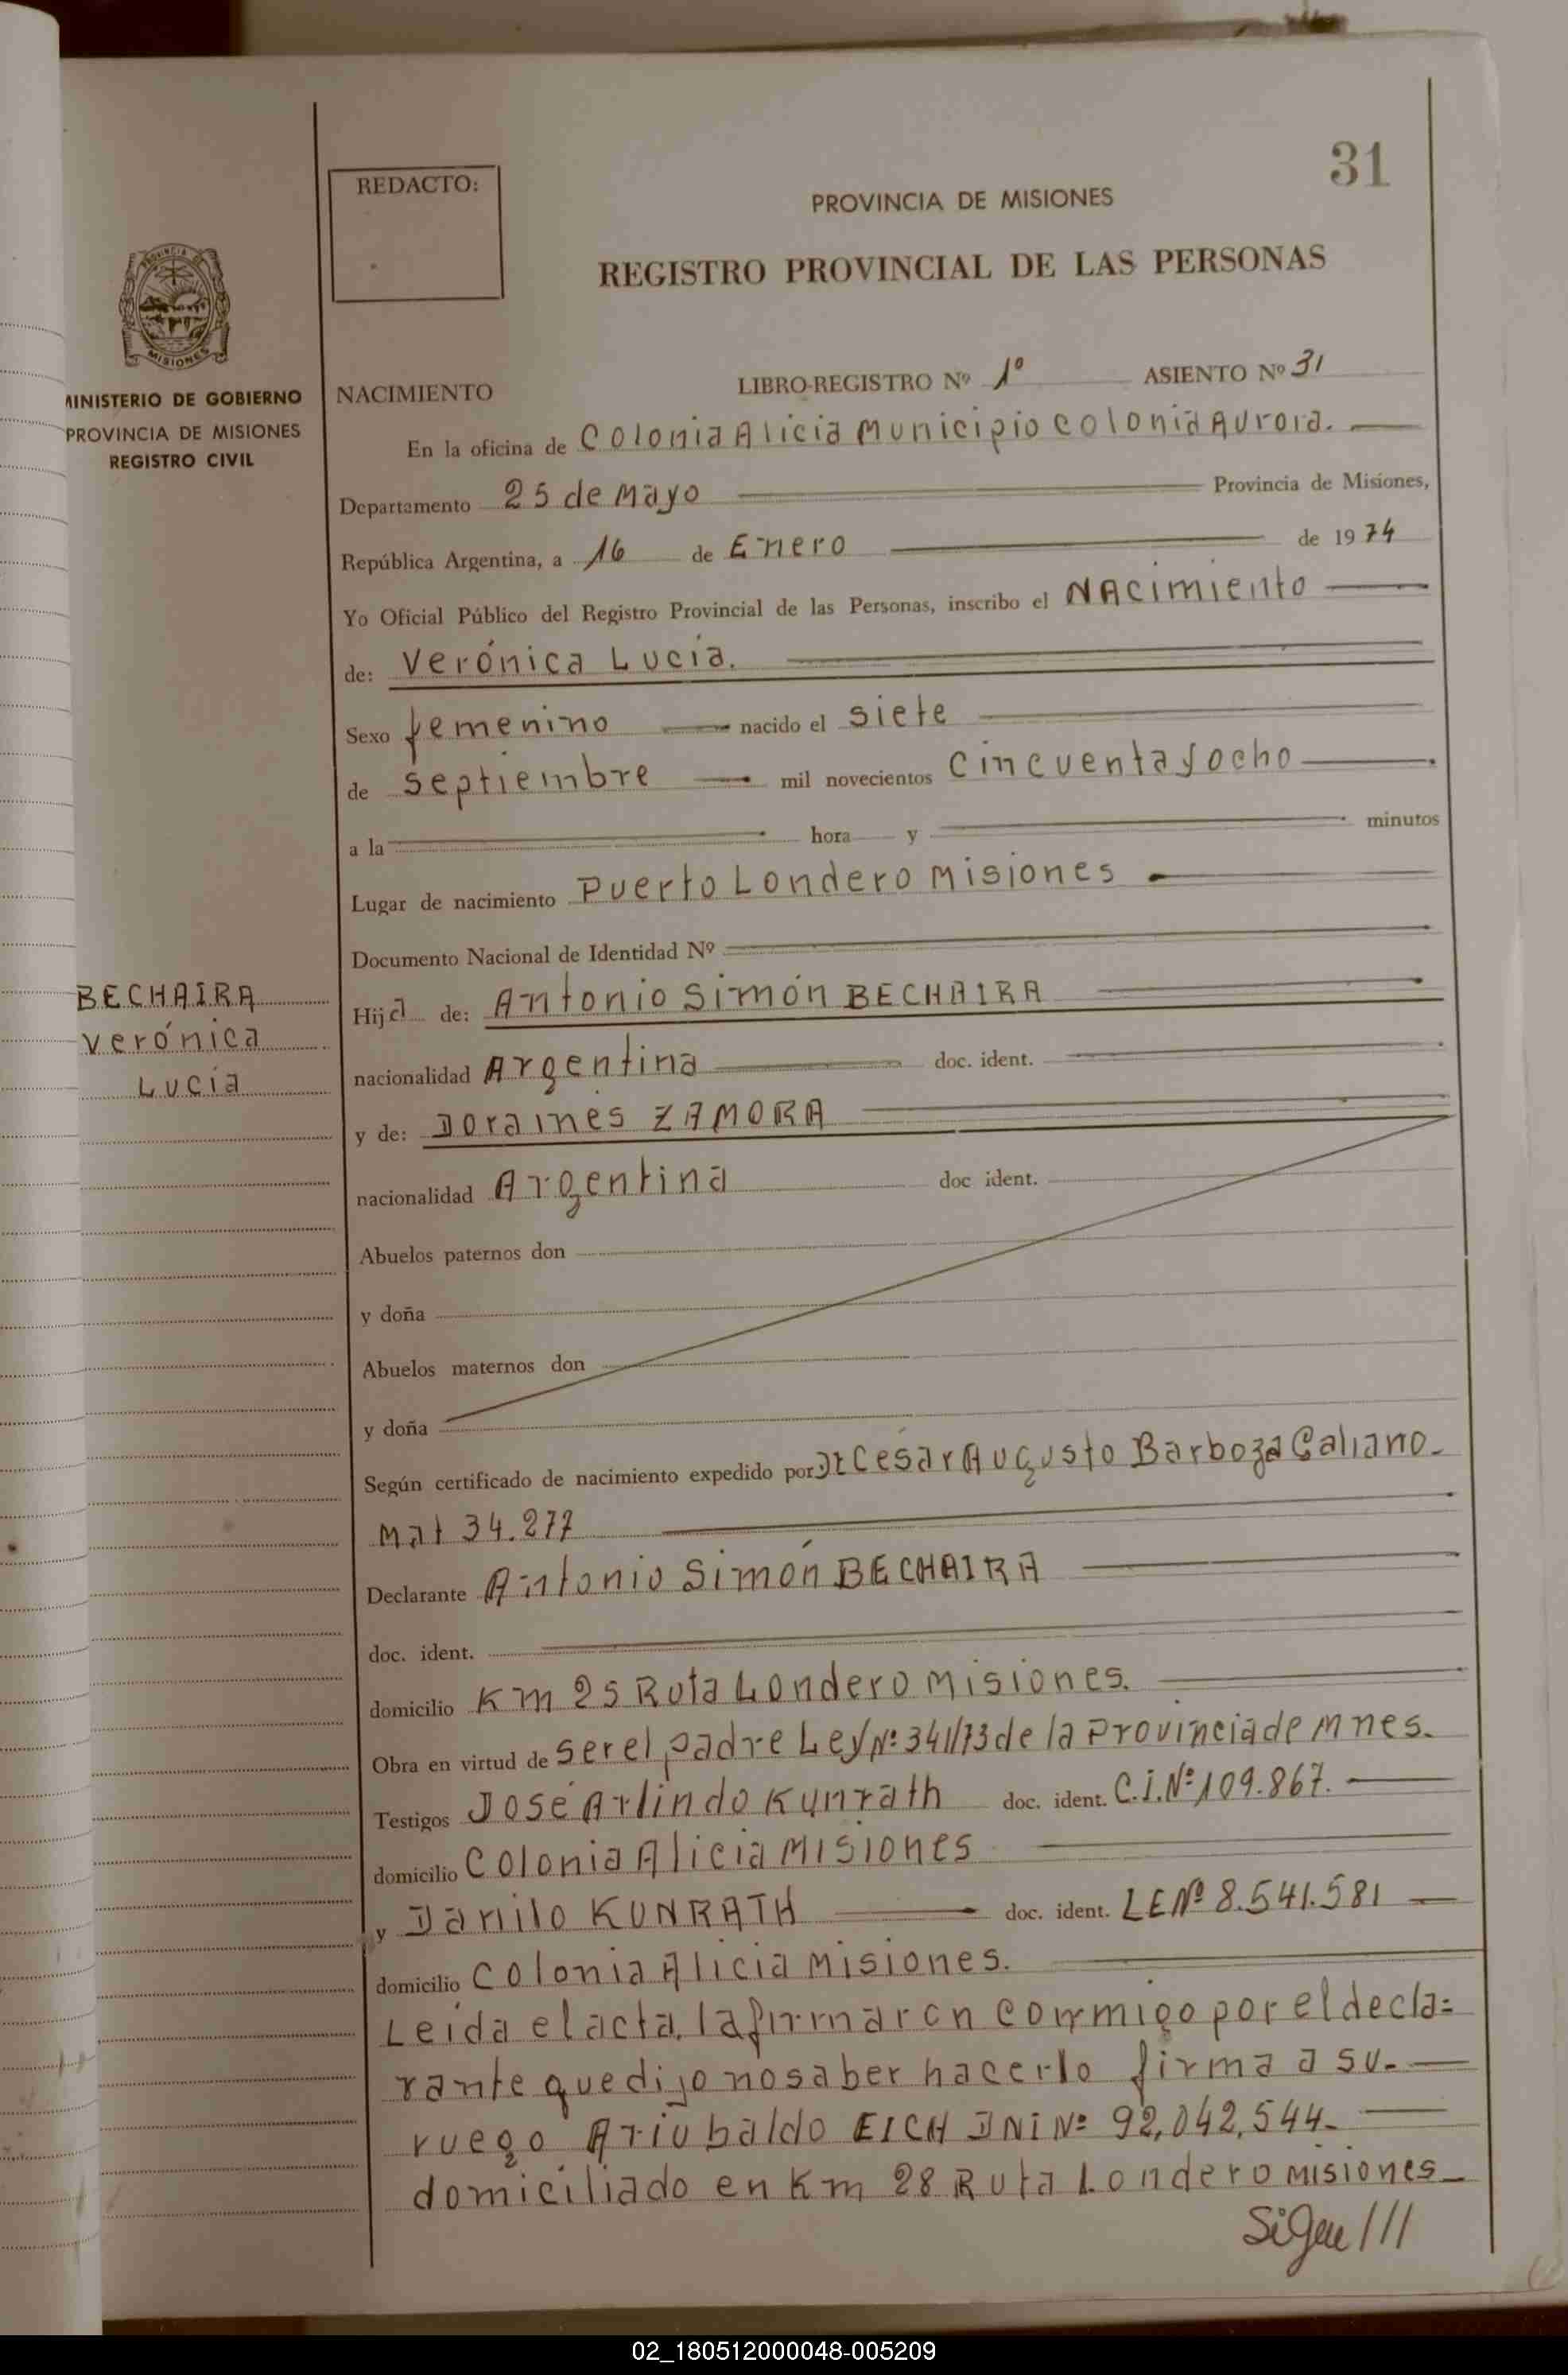 31
REDACTO:
PROVINCIA DE MISIONES
REGISTRO PROVINCIAL DE LAS PERSONAS
PROVINCIA DE
MISIONES
MINISTERIO DE GOBIERNO
PROVINCIA DE MISIONES
REGISTRO CIVIL
NACIMIENTO LIBRO-REGISTRO Nº 1º ASIENTO Nº 31
En la oficina de Colonia Alicia Municipio Colonia Aurora.
Departamento 25 de Mayo Provincia de Misiones,
República Argentina, a 16 de Enero de 1974
Yo Oficial Público del Registro Provincial de las Personas, inscribo el NAcimiento
de: Verónica Lucía.
Sexo femenino nacido el siete
de septiembre mil novecientos cincuenta y ocho
a la hora y minutos
Lugar de nacimiento Puerto Londero Misiones
Documento Nacional de Identidad Nº
BECHAIRA
Verónica
Lucía
Hija de: Antonio Simón BECHAIRA
nacionalidad Argentina doc. ident.
y de: Dora Inés ZAMORA
nacionalidad Argentina doc ident.
Abuelos paternos don
y doña
Abuelos maternos don
y doña
Según certificado de nacimiento expedido por Dr César Augusto Barboza Galiano.
Mat 34.277
Declarante Antonio Simón BECHAIRA
doc. ident.
domicilio Km 25 Ruta Londero Misiones.
Obra en virtud de ser el padre Ley Nº 341/73 de la Provincia de Mnes.
Testigos José Arlindo Kunrath doc. ident. C.I. Nº 109.867.
domicilio Colonia Alicia Misiones
y Danilo KUNRATH doc. ident. LE Nº 8.541.581
domicilio Colonia Alicia Misiones.
Leída el acta, la firmaron conmigo por el decla=
rante que dijo no saber hacerlo firma a su.
ruego Ariobaldo EICH DNI Nº 92,042,544.
domiciliado en Km 28 Ruta Londero Misiones
Sigue ///
02_180512000048-005209